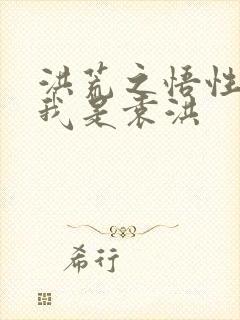 洪荒之悟性
我是袁洪
希行